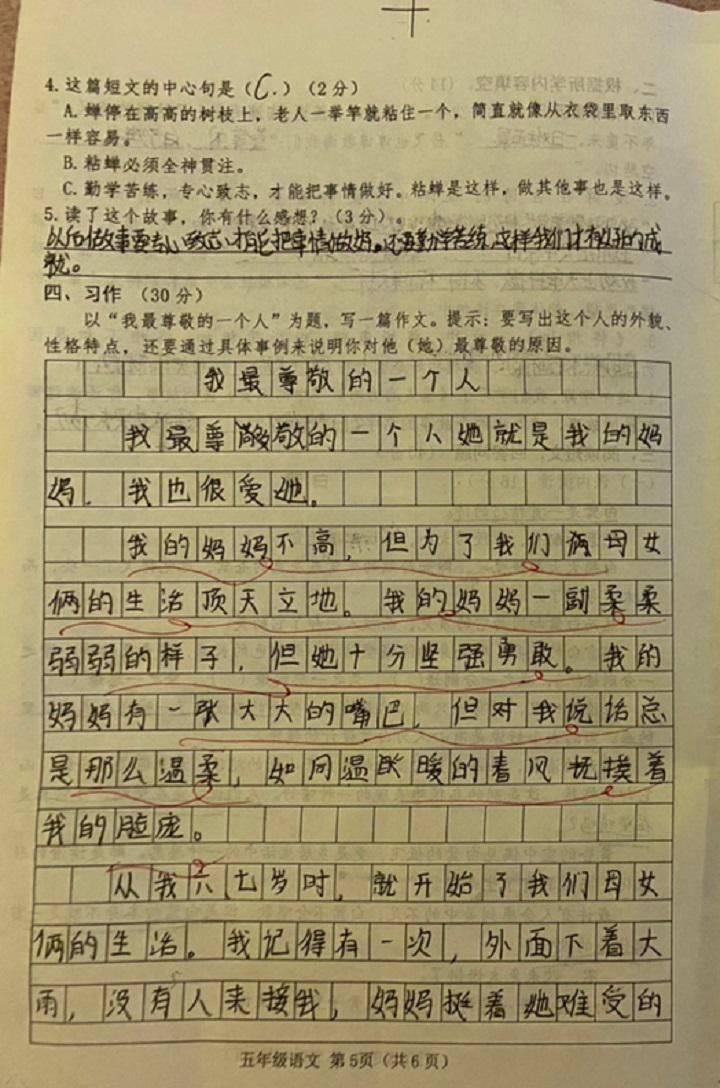 4.这篇短文的中心句是（C.）（2分）
A.蝉停在高高的树枝上，老人一举竿就粘住一个，简直就像从衣袋里取东西
一样容易。
B.粘蝉必须全神贯注。
C.勤学苦练，专心致志，才能把事情做好。粘蝉是这样，做其他事也是这样。
5.读了这个故事，你有什么感想？（3分）。
以后做事要专心致志，才能把事情做好。还要勤学苦练，这样我们才有好的成
就。
四、习作 （30分）
以“我最尊敬的一个人”为题，写一篇作文。提示：要写出这个人的外貌、
性格特点，还要通过具体事例来说明你对他（她）最尊敬的原因。
我最尊敬的一个人
我最尊敬的一个人她就是我的妈
妈．我也很爱她。
我的妈妈不高，但为了我们俩母女
俩的生活顶天立地。我的妈妈一副柔柔
弱弱的样子，但她十分坚强勇敢。我的
妈妈有一张大大的嘴巴，但对我说话总
是那么温柔，如同温暖的春风抚摸着
我的脸庞。
从我六七岁时，就开始了我们母女
俩的生活。我记得有一次，外面下着大
雨，没有人来接我，妈妈挺着她难受的
五年级语文 第5页（共6页）